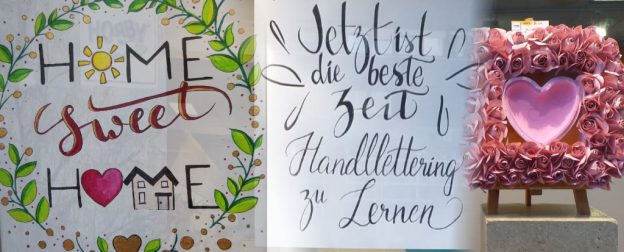 HOME
Sweet
HOME
Jetzt ist
die beste
Zeit
Handllettering
zu Lernen